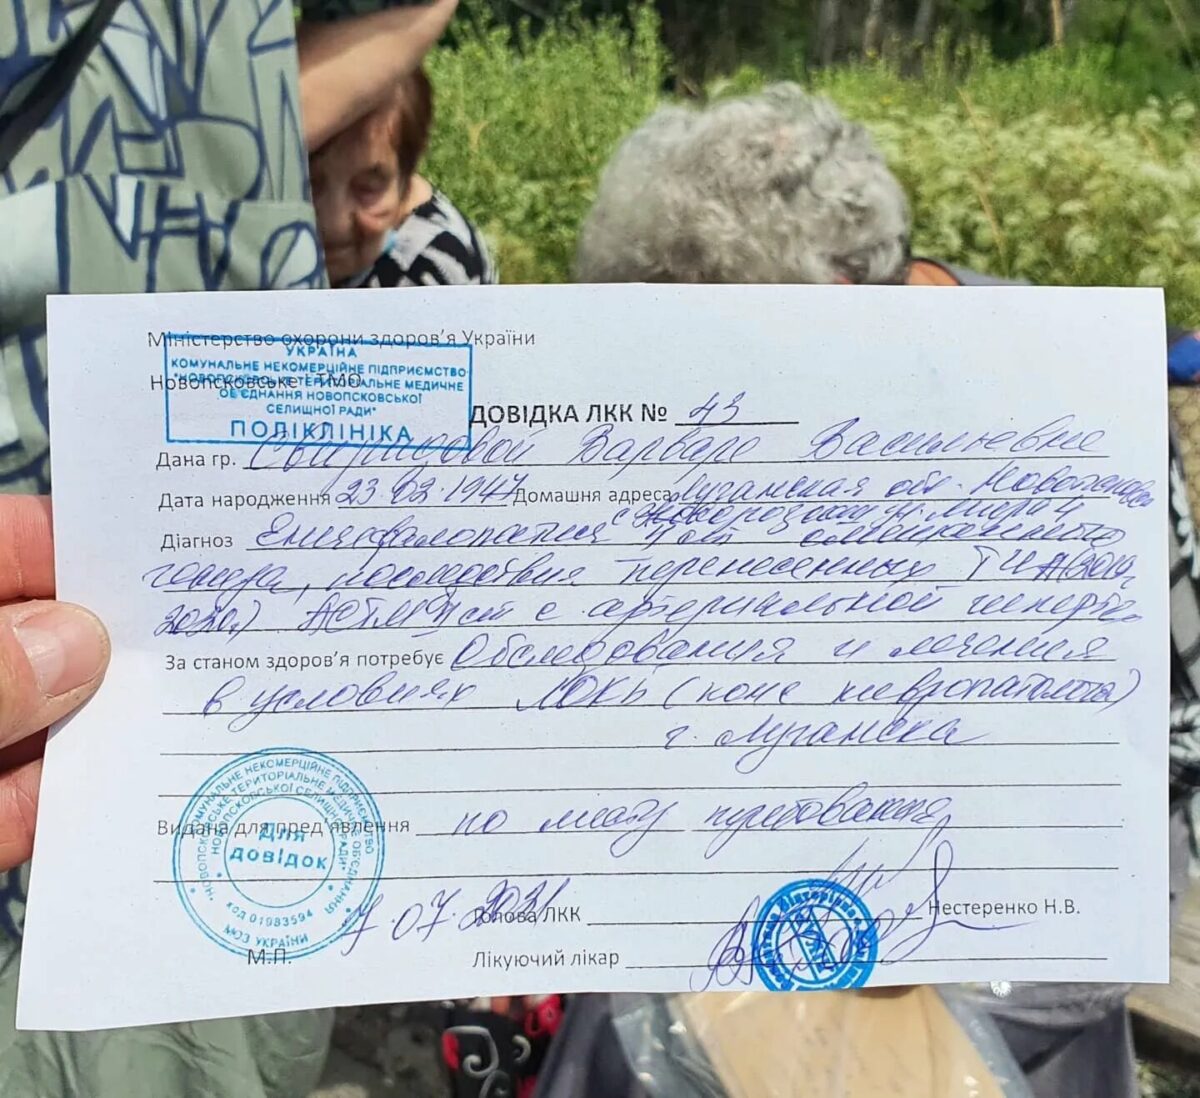 Міністерство охорони здоров'я України
УКРАЇНА
КОМУНАЛЬНЕ НЕКОМЕРЦІЙНЕ ПІДПРИЄМСТВО
Новопсковське ТМО
"НОВОПСКОВСЬКЕ ТЕРИТОРІАЛЬНЕ МЕДИЧНЕ
ОБ'ЄДНАННЯ НОВОПСКОВСЬКОЇ
СЕЛИЩНОЇ РАДИ"
ПОЛІКЛІНІКА
ДОВІДКА ЛКК № 43
Дана гр. Варваре Васильевне
Дата народження 23.02.1947 Домашня адреса Луганская обл.
Діагноз Энцефалопатия смешанного
генеза, последствия перенесенных ТИА
2020г) ст с артериальной
За станом здоров'я потребує Обследования и лечения
в условиях ЛОКБ (конс невропатолога)
г. Луганска
Видана для пред'явлення по месту требования
КОМУНАЛЬНЕ НЕКОМЕРЦІЙНЕ ПІДПРИЄМСТВО
НОВОПСКОВСЬКЕ ТЕРИТОРІАЛЬНЕ МЕДИЧНЕ ОБ'ЄДНАННЯ
НОВОПСКОВСЬКОЇ СЕЛИЩНОЇ РАДИ"
Для
довідок
КОД 01983594
МОЗ УКРАЇНИ
7.07.2021
Голова ЛКК Нестеренко Н.В.
М.П. Лікуючий лікар